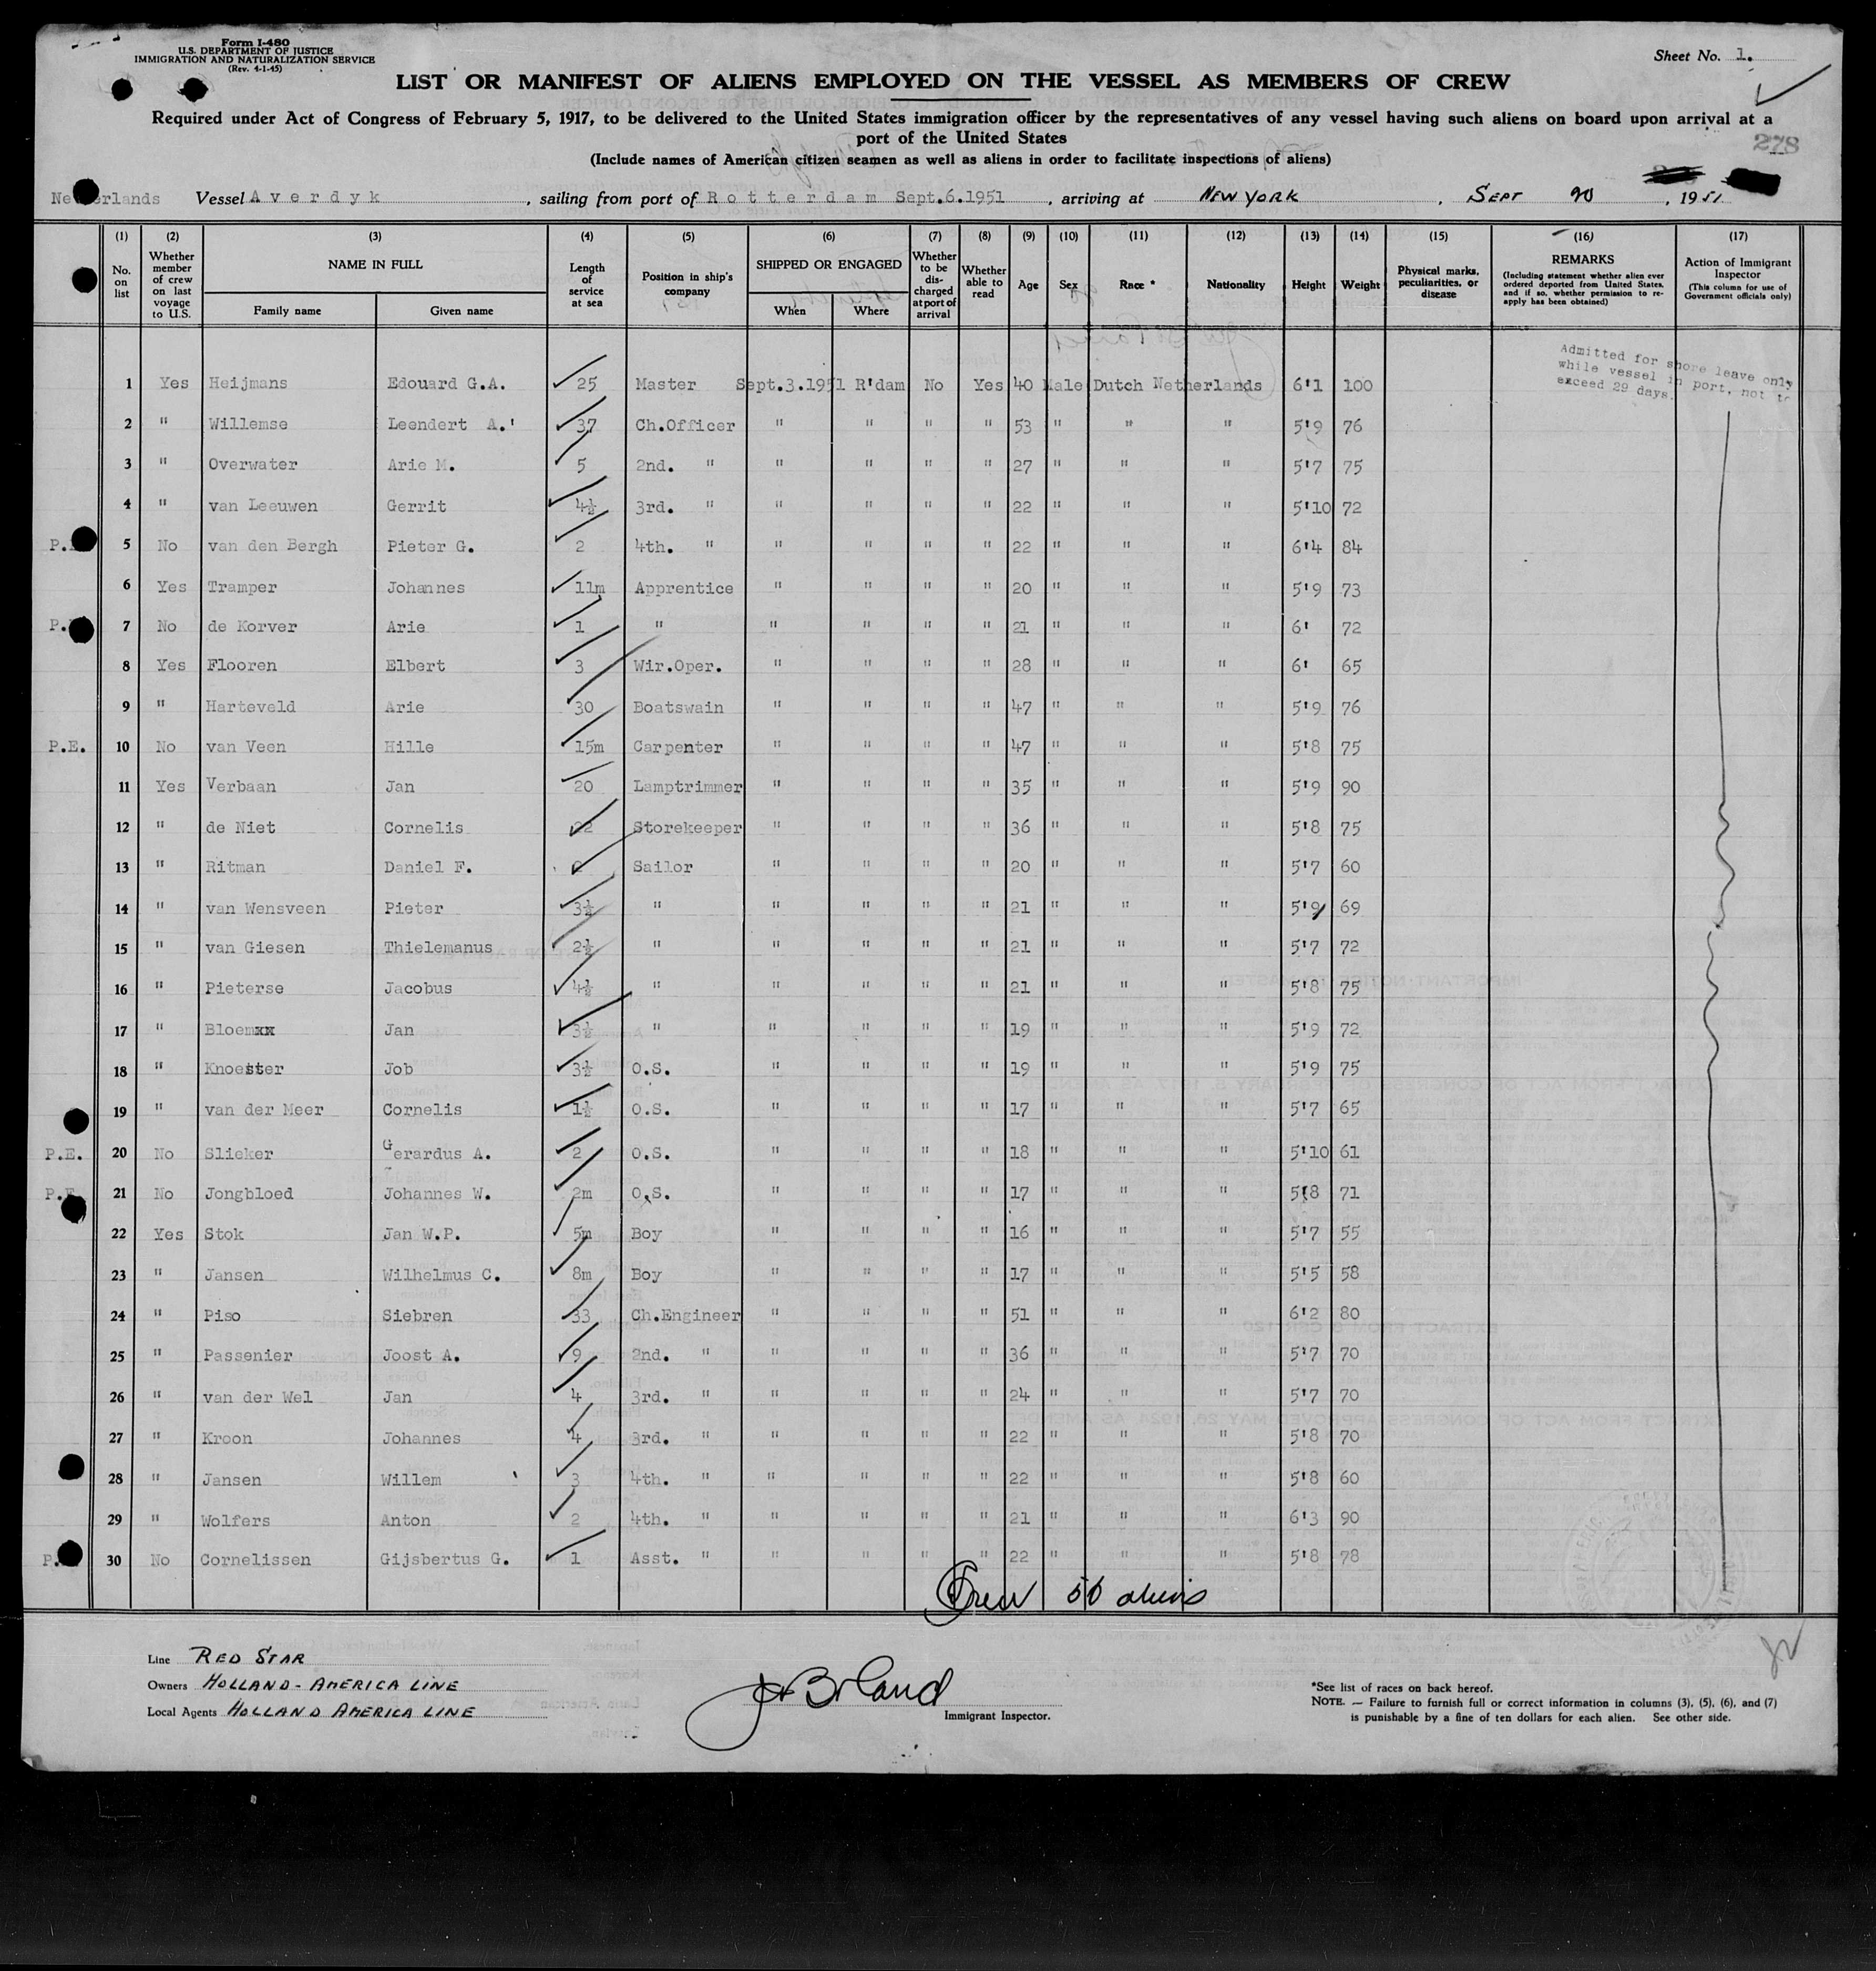 Form I-480
U.S. DEPARTMENT OF JUSTICE
IMMIGRATION AND NATURALIZATION SERVICE
(Rev. 4-1-45)
Sheet No. 1.
LIST OR MANIFEST OF ALIENS EMPLOYED ON THE VESSEL AS MEMBERS OF CREW
Required under Act of Congress of February 5, 1917, to be delivered to the United States immigration officer by the representatives of any vessel having such aliens on board upon arrival at a
port of the United States
278
(Include names of American citizen seamen as well as aliens in order to facilitate inspections of aliens)
Netherlands Vessel Averdyk, sailing from port of Rotterdam Sept.6.1951, arriving at NEW YORK, SEPT, 1951
(1) (2) (3) (4) (5) (6) (7) (8) (9) (10) (11) (12) (13) (14) (15) (16) (17)
No. on list
Whether member of crew on last voyage to U.S.
NAME IN FULL
Family name Given name
Length of service at sea
Position in ship's company
SHIPPED OR ENGAGED
When Where
Whether to be discharged at port of arrival
Whether able to read
Age
Sex
Race *
Nationality
Height
Weight
Physical marks, peculiarities, or disease
REMARKS
(Including statement whether alien ever ordered deported from United States, and if so, whether permission to reapply has been obtained)
Action of Immigrant Inspector
(This column for use of Government officials only)
Admitted for shore leave only
while vessel in port, not to
exceed 29 days.
1 Yes Heijmans Edouard G.A. 25 Master Sept.3.1951 R'dam No Yes 40 Male Dutch Netherlands 6'1 100
2 " Willemse Leendert A.' 37 Ch.Officer " " " " 53 " " " 5'9 76
3 " Overwater Arie M. 5 2nd. " " " " " 27 " " " 5'7 75
4 " van Leeuwen Gerrit 4½ 3rd. " " " " " 22 " " " 5'10 72
5 No van den Bergh Pieter G. 2 4th. " " " " " 22 " " " 6'4 84
6 Yes Tramper Johannes 11m Apprentice " " " " 20 " " " 5'9 73
7 No de Korver Arie 1 " " " " " 21 " " " 6' 72
8 Yes Flooren Elbert 3 Wir.Oper. " " " " 28 " " " 6' 65
9 " Harteveld Arie 30 Boatswain " " " " 47 " " " 5'9 76
P.E. 10 No van Veen Hille 15m Carpenter " " " " 47 " " " 5'8 75
11 Yes Verbaan Jan 20 Lamptrimmer " " " " 35 " " " 5'9 90
12 " de Niet Cornelis 22 Storekeeper " " " " 36 " " " 5'8 75
13 " Ritman Daniel F. Sailor " " " " 20 " " " 5'7 60
14 " van Wensveen Pieter 3½ " " " " " 21 " " " 5'9 69
15 " van Giesen Thielemanus 2½ " " " " " 21 " " " 5'7 72
16 " Pieterse Jacobus 4½ " " " " " 21 " " " 5'8 75
17 " Bloemxx Jan 3½ " " " " " 19 " " " 5'9 72
18 " Knoester Job 3½ O.S. " " " " 19 " " " 5'9 75
19 " van der Meer Cornelis 1½ O.S. " " " " 17 " " " 5'7 65
P.E. 20 No Slieker Gerardus A. 2 O.S. " " " " 18 " " " 5'10 61
P.E. 21 No Jongbloed Johannes W. 2m O.S. " " " " 17 " " " 5'8 71
22 Yes Stok Jan W.P. 5m Boy " " " " 16 " " " 5'7 55
23 " Jansen Wilhelmus C. 8m Boy " " " " 17 " " " 5'5 58
24 " Piso Siebren 33 Ch.Engineer " " " " 51 " " " 6'2 80
25 " Passenier Joost A. 9 2nd. " " " " " 36 " " " 5'7 70
26 " van der Wel Jan 4 3rd. " " " " " 24 " " " 5'7 70
27 " Kroon Johannes 4 3rd. " " " " " 22 " " " 5'8 70
28 " Jansen Willem 3 4th. " " " " " 22 " " " 5'8 60
29 " Wolfers Anton 2 4th. " " " " " 21 " " " 6'3 90
30 No Cornelissen Gijsbertus G. 1 Asst. " " " " " 22 " " " 5'8 78
Crew aliens
Line RED STAR
Owners HOLLAND-AMERICA LINE
Local Agents HOLLAND AMERICA LINE
Immigrant Inspector.
*See list of races on back hereof.
NOTE. — Failure to furnish full or correct information in columns (3), (5), (6), and (7)
is punishable by a fine of ten dollars for each alien. See other side.